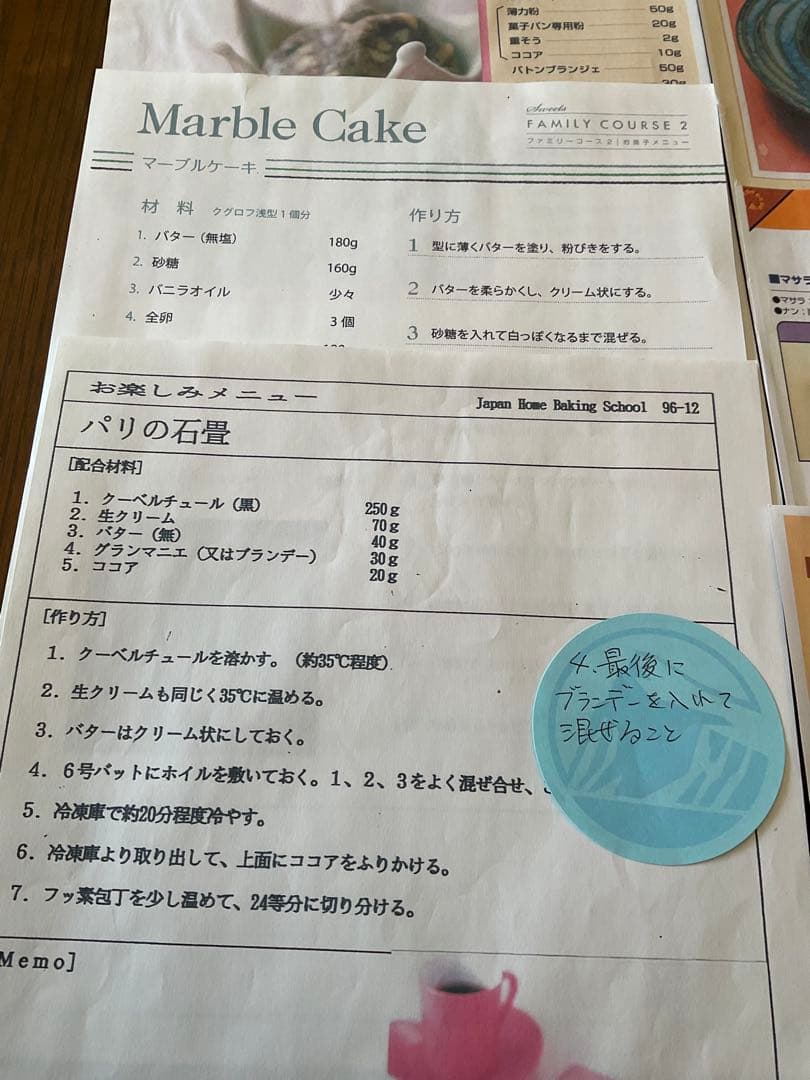 薄力粉 50g
菓子パン専用粉 20g
重そう 2g
ココア 10g
バトンブランジェ 50g
Marble Cake
マーブルケーキ
Sweets
FAMILY COURSE 2
ファミリーコース2|お菓子メニュー
材 料 クグロフ浅型1個分
1. バター(無塩) 180g
2. 砂糖 160g
3. バニラオイル 少々
4. 全卵 3個
作り方
1 型に薄くバターを塗り、粉びきをする。
2 バターを柔らかくし、クリーム状にする。
3 砂糖を入れて白っぽくなるまで混ぜる。
■マサラ
●マサラ
●ナン
お楽しみメニュー
Japan Home Baking School 96-12
パリの石畳
[配合材料]
1. クーベルチュール(黒) 250g
2. 生クリーム 70g
3. バター(無) 40g
4. グランマニエ(又はブランデー) 30g
5. ココア 20g
[作り方]
1. クーベルチュールを溶かす。(約35℃程度)
2. 生クリームも同じく35℃に温める。
3. バターはクリーム状にしておく。
4. 6号バットにホイルを敷いておく。1、2、3をよく混ぜ合せ、
5. 冷凍庫で約20分程度冷やす。
6. 冷凍庫より取り出して、上面にココアをふりかける。
7. フッ素包丁を少し温めて、24等分に切り分ける。
Memo]
4.最後に
ブランデーを入れて
混ぜること